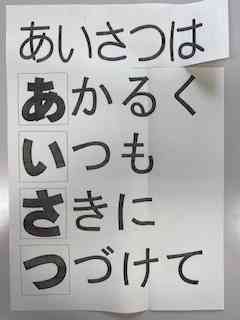 あいさつは
あかるく
いつも
さきに
つづけて